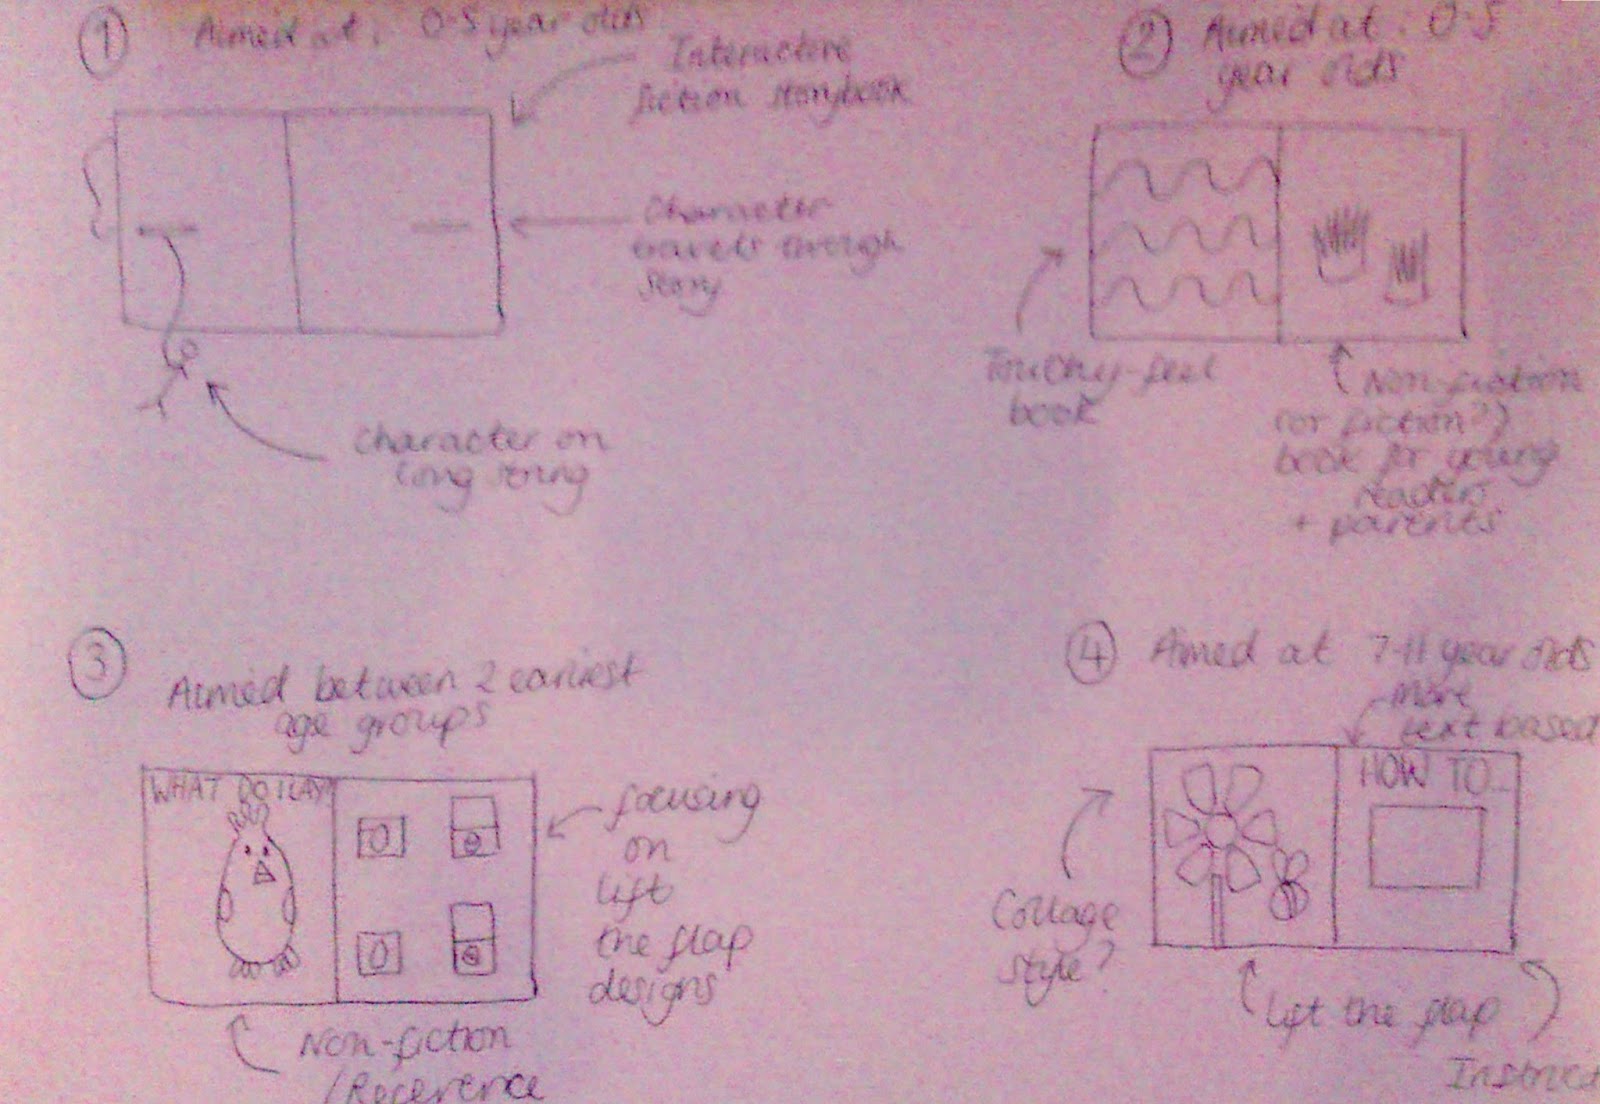 1
Aimed at: 0-5 year olds
Interactive
fiction storybook
Character
travels through
story
Character on
long string
2
Aimed at: 0-5
year olds
Touchy-feel
book
Non-fiction
(or fiction?)
book for young
readers
+ parents
3
Aimed between 2 earliest
age groups
WHAT DO I LAY?
focusing
on
lift
the flap
designs
Non-fiction
/Reference
4
Aimed at 7-11 year olds
more
text based
HOW TO...
Collage
style?
Lift the flap
Instruct